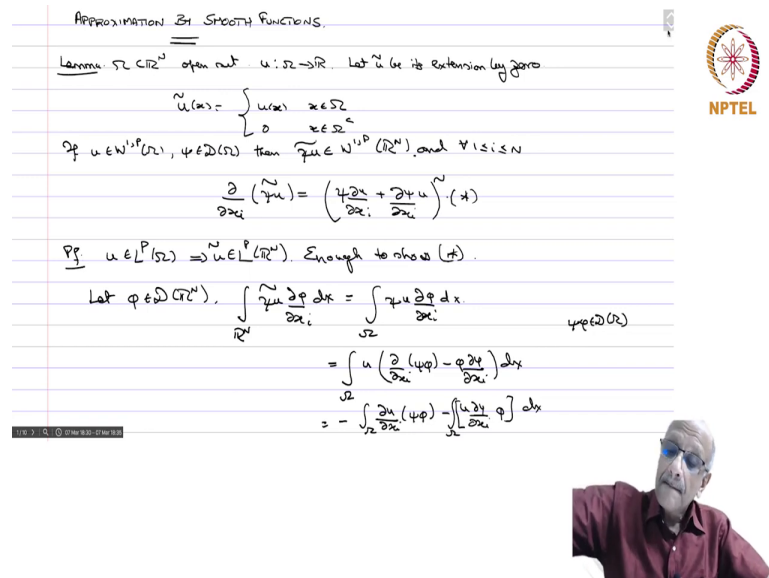 APPROXIMATION BY SMOOTH FUNCTIONS.
Lemma. Ω⊂ℝᴺ open set u:Ω→ℝ. Let ũ be its extension by zero
ũ(x)= { u(x) x∈Ω
0 x∈Ωᶜ
If u∈W¹,ᵖ(Ω), ψ∈𝒟(Ω) then ψ͠u∈W¹,ᵖ(ℝᴺ), and ∀ 1≤i≤N
∂/∂xᵢ (ψ͠u) = (ψ ∂u/∂xᵢ + ∂ψ/∂xᵢ u)~. (*)
Pf. u∈Lᵖ(Ω) ⇒ ũ∈Lᵖ(ℝᴺ). Enough to show (*).
Let φ∈𝒟(ℝᴺ). ∫_ℝᴺ ψ͠u ∂φ/∂xᵢ dx = ∫_Ω ψu ∂φ/∂xᵢ dx.
ψφ∈𝒟(Ω)
= ∫_Ω u (∂/∂xᵢ (ψφ) - φ ∂ψ/∂xᵢ) dx
= - ∫_Ω ∂u/∂xᵢ (ψφ) - ∫_Ω [u ∂ψ/∂xᵢ φ] dx
NPTEL
1/10
07 Mar 18:30 - 07 Mar 18:35